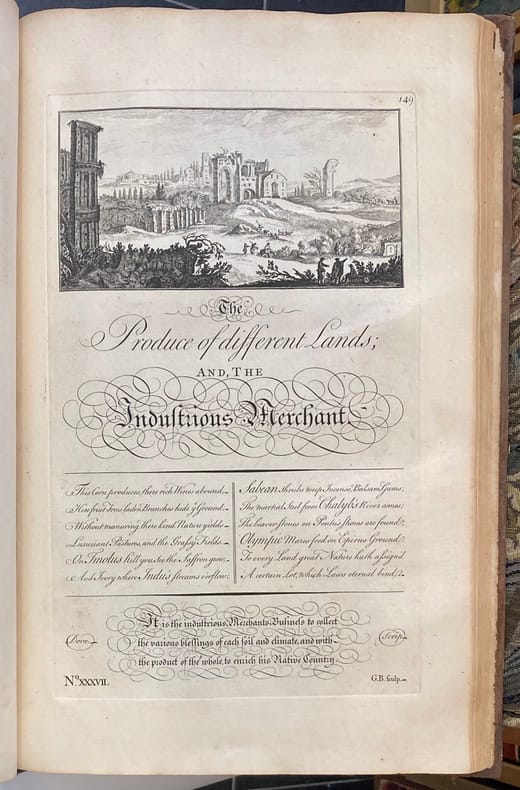 149
The
Produce of different Lands;
AND, THE
Industrious Merchant.
This Corn produces, there rich Wines abound,
Here fruit Trees laden Branches hide yͤ Ground.
Without manuring, there kind Nature yields
Luxuriant Pastures, and the Grassy Fields
On Tmolus hill you see the Saffron grow,
And Ivory where Indus streams o'erflow;
Sabean Shrubs weep Incense, Balsam, Gums;
The martial Steel from Chalybs River comes;
The beaver stones on Pontus shores are found;
Olympic Mares feed on Epirus Ground;
To every Land great Nature hath assign'd
A certain Lot, which Laws eternal bind.
It is the industrious Merchants Business to collect
the various blessings of each soil and climate, and with
the product of the whole, to enrich his Native Country.
Dove
Scrip.
N.º XXXVII.
G.B. sculp.